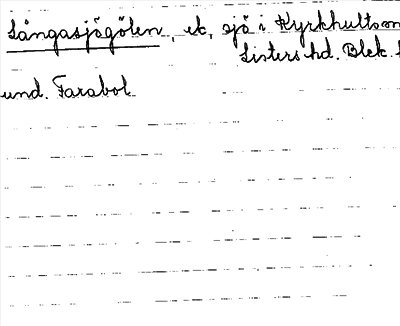 Långasjögölen, ek, sjö i Kyrkhults
Listers hd. Blek.
und. Farabol